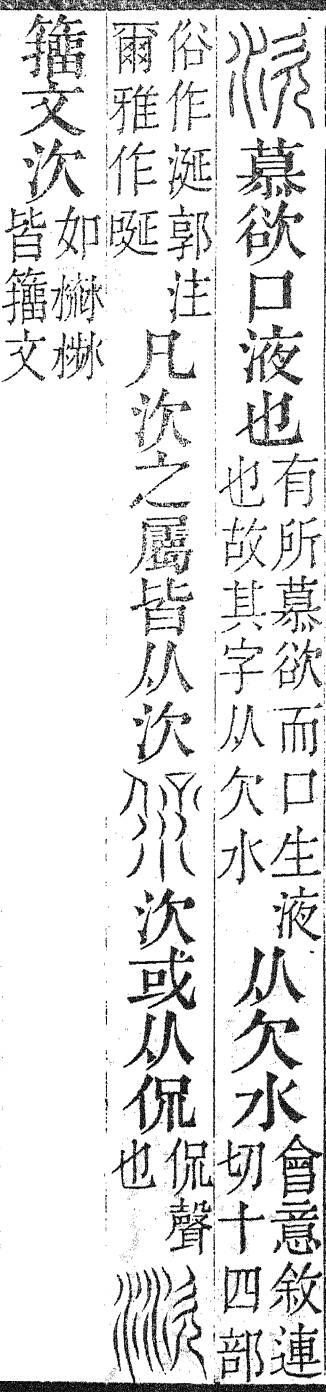 㳄慕欲口液也有所慕欲而口生液也故其字从欠水从欠水會意敘連切十四部
俗作涎郭注爾雅作唌凡㳄之屬皆从㳄㳄或从侃侃聲也
籒文㳄如皆籒文